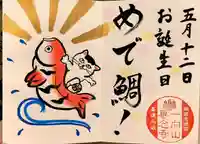 五月十二日
お誕生日
めで鯛!
一向山
専念寺